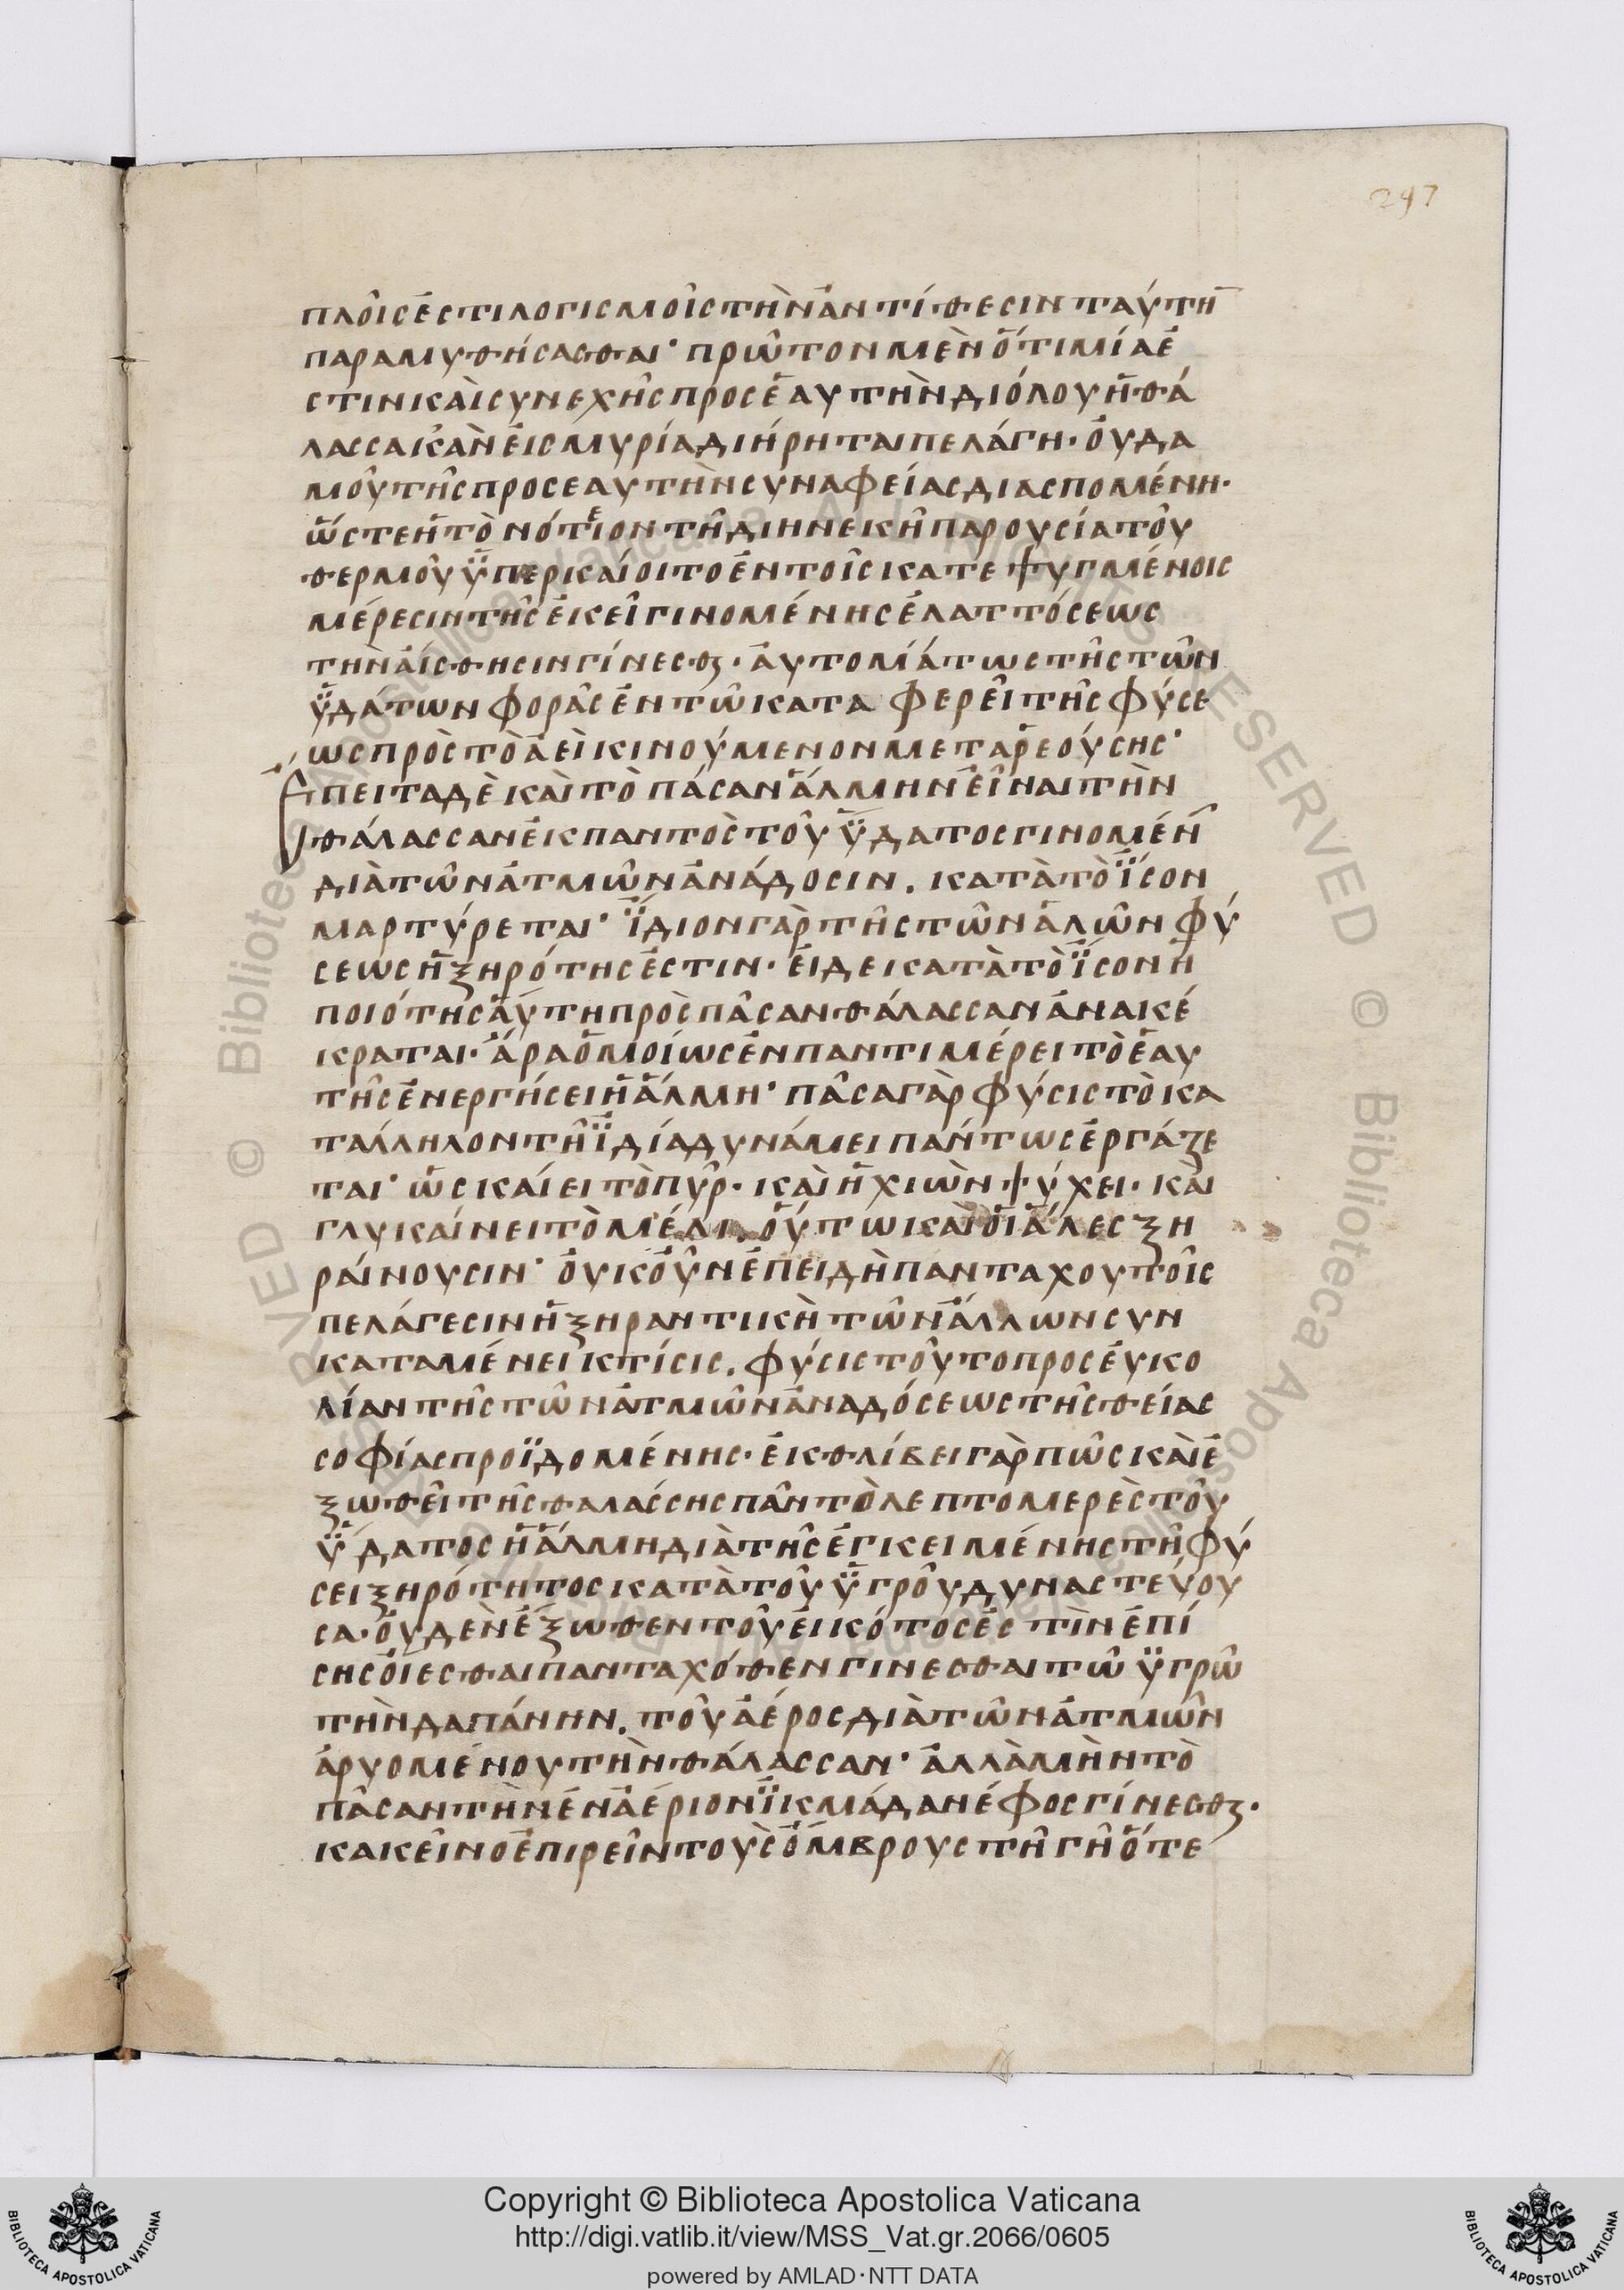 297
πλοῖς ἐστι λογισμοῖς τὴν ἀντίθεσιν ταύτη̅
παραμυθήσασθαι· πρῶτον μὲν ὅτι μία ἐ
στιν καὶ συνεχὴς προς ἑαυτὴν διόλου ἡ θά
λασσα κἀν εἰς μυρία διήρηται πελάγη· οὐδα
μοῦ τῆς προς εαυτὴν συναφείας διασπομένη·
ὥστε ἢ τὸ νότιον τῇ διηνεκῆ παρουσία τοῦ
θερμοῦ ὑπερκαίοιτο ἐν τοῖς κατεψυγμένοις
μέρεσιν τῆς ἐκεῖ γινομένης ἐλαττόσεως
τὴν αἴσθησιν γίνεσθαι· αὐτομάτως τῆς τῶν
ὑδάτων φορᾶς ἐν τῶ καταφερεῖ τῆς φύσε
ως πρὸς τὸ ἀεὶ κινούμενον μεταρεούσης·
Ἔπειτα δὲ καὶ τὸ πάσαν ἅλμην εἶναι τὴν
θάλασσαν ἐκ παντὸς τοῦ ὕδατος γινομένη̅
διὰ τῶν ἀτμῶν ἀνάδοσιν. κατὰ τὸ ἴσον
μαρτύρεται· ἴδιον γὰρ τῆς τῶν ἁλῶν φύ
σεως ἡ ξηρότης ἐστιν· εἰ δε κατὰ τὸ ἴσον ἡ
ποιότης αὕτη πρὸς πᾶσαν θάλασσαν ἀνακέ
κραται· ἄρα ὁμοίως ἐν παντι μέρει τὸ ἑαυ
τῆς ἐνεργήσει ἡ ἅλμη· πᾶσα γὰρ φύσις τὸ κα
τάλληλον τῇ ἰδία δυνάμει πάντως ἐργάζε
ται· ὡς καίει τὸ πῦρ· καὶ ἡ χιὼν ψύχει· καὶ
γλυκαίνει τὸ μέλι. οὕτω καὶ οἱ ἅλες ξη
ραίνουσιν· οὐκοῦν ἐπειδὴ πανταχου τοῖς
πελάγεσιν ἡ ξηραντικὴ τῶν ἅλλων συν
καταμένει κτίσις. φύσις τοῦτο προς εὐκο
λίαν τῆς τῶν ἀτμῶν ἀναδόσεως τῆς θείας
σοφίας προϊδομένης· ἐκθλίβει γὰρ πῶς καὶ ἐ
ξωθεῖ τῆς θαλάσσης πᾶν τὸ λεπτομερὲς τοῦ
ὕδατος ἡ ἅλμη διὰ τῆς ἐγκειμένης τῇ φύ
σει ξηρότητος κατὰ τοῦ ὑγροῦ δυναστεύου
σα· οὐδὲν ἔξωθεν τοῦ εἰκότος ἐστὶν ἐπί
σης οἴεσθαι πανταχόθεν γινεσθαι τῶ ὑγρῶ
τὴν δαπάνην. τοῦ ἀέρος διὰ τῶν ἀτμῶν
ἀρυομένου τὴν θάλασσαν· ἀλλὰ μὴν τὸ
πᾶσαν τὴν ἐναέριον ἰκμάδα νέφος γίνεσθαι·
κακεῖνο ἐπιρεῖν τοὺς ὄμβρους τῇ γῇ ὅτε
Copyright © Biblioteca Apostolica Vaticana
http://digi.vatlib.it/view/MSS_Vat.gr.2066/0605
powered by AMLAD·NTT DATA